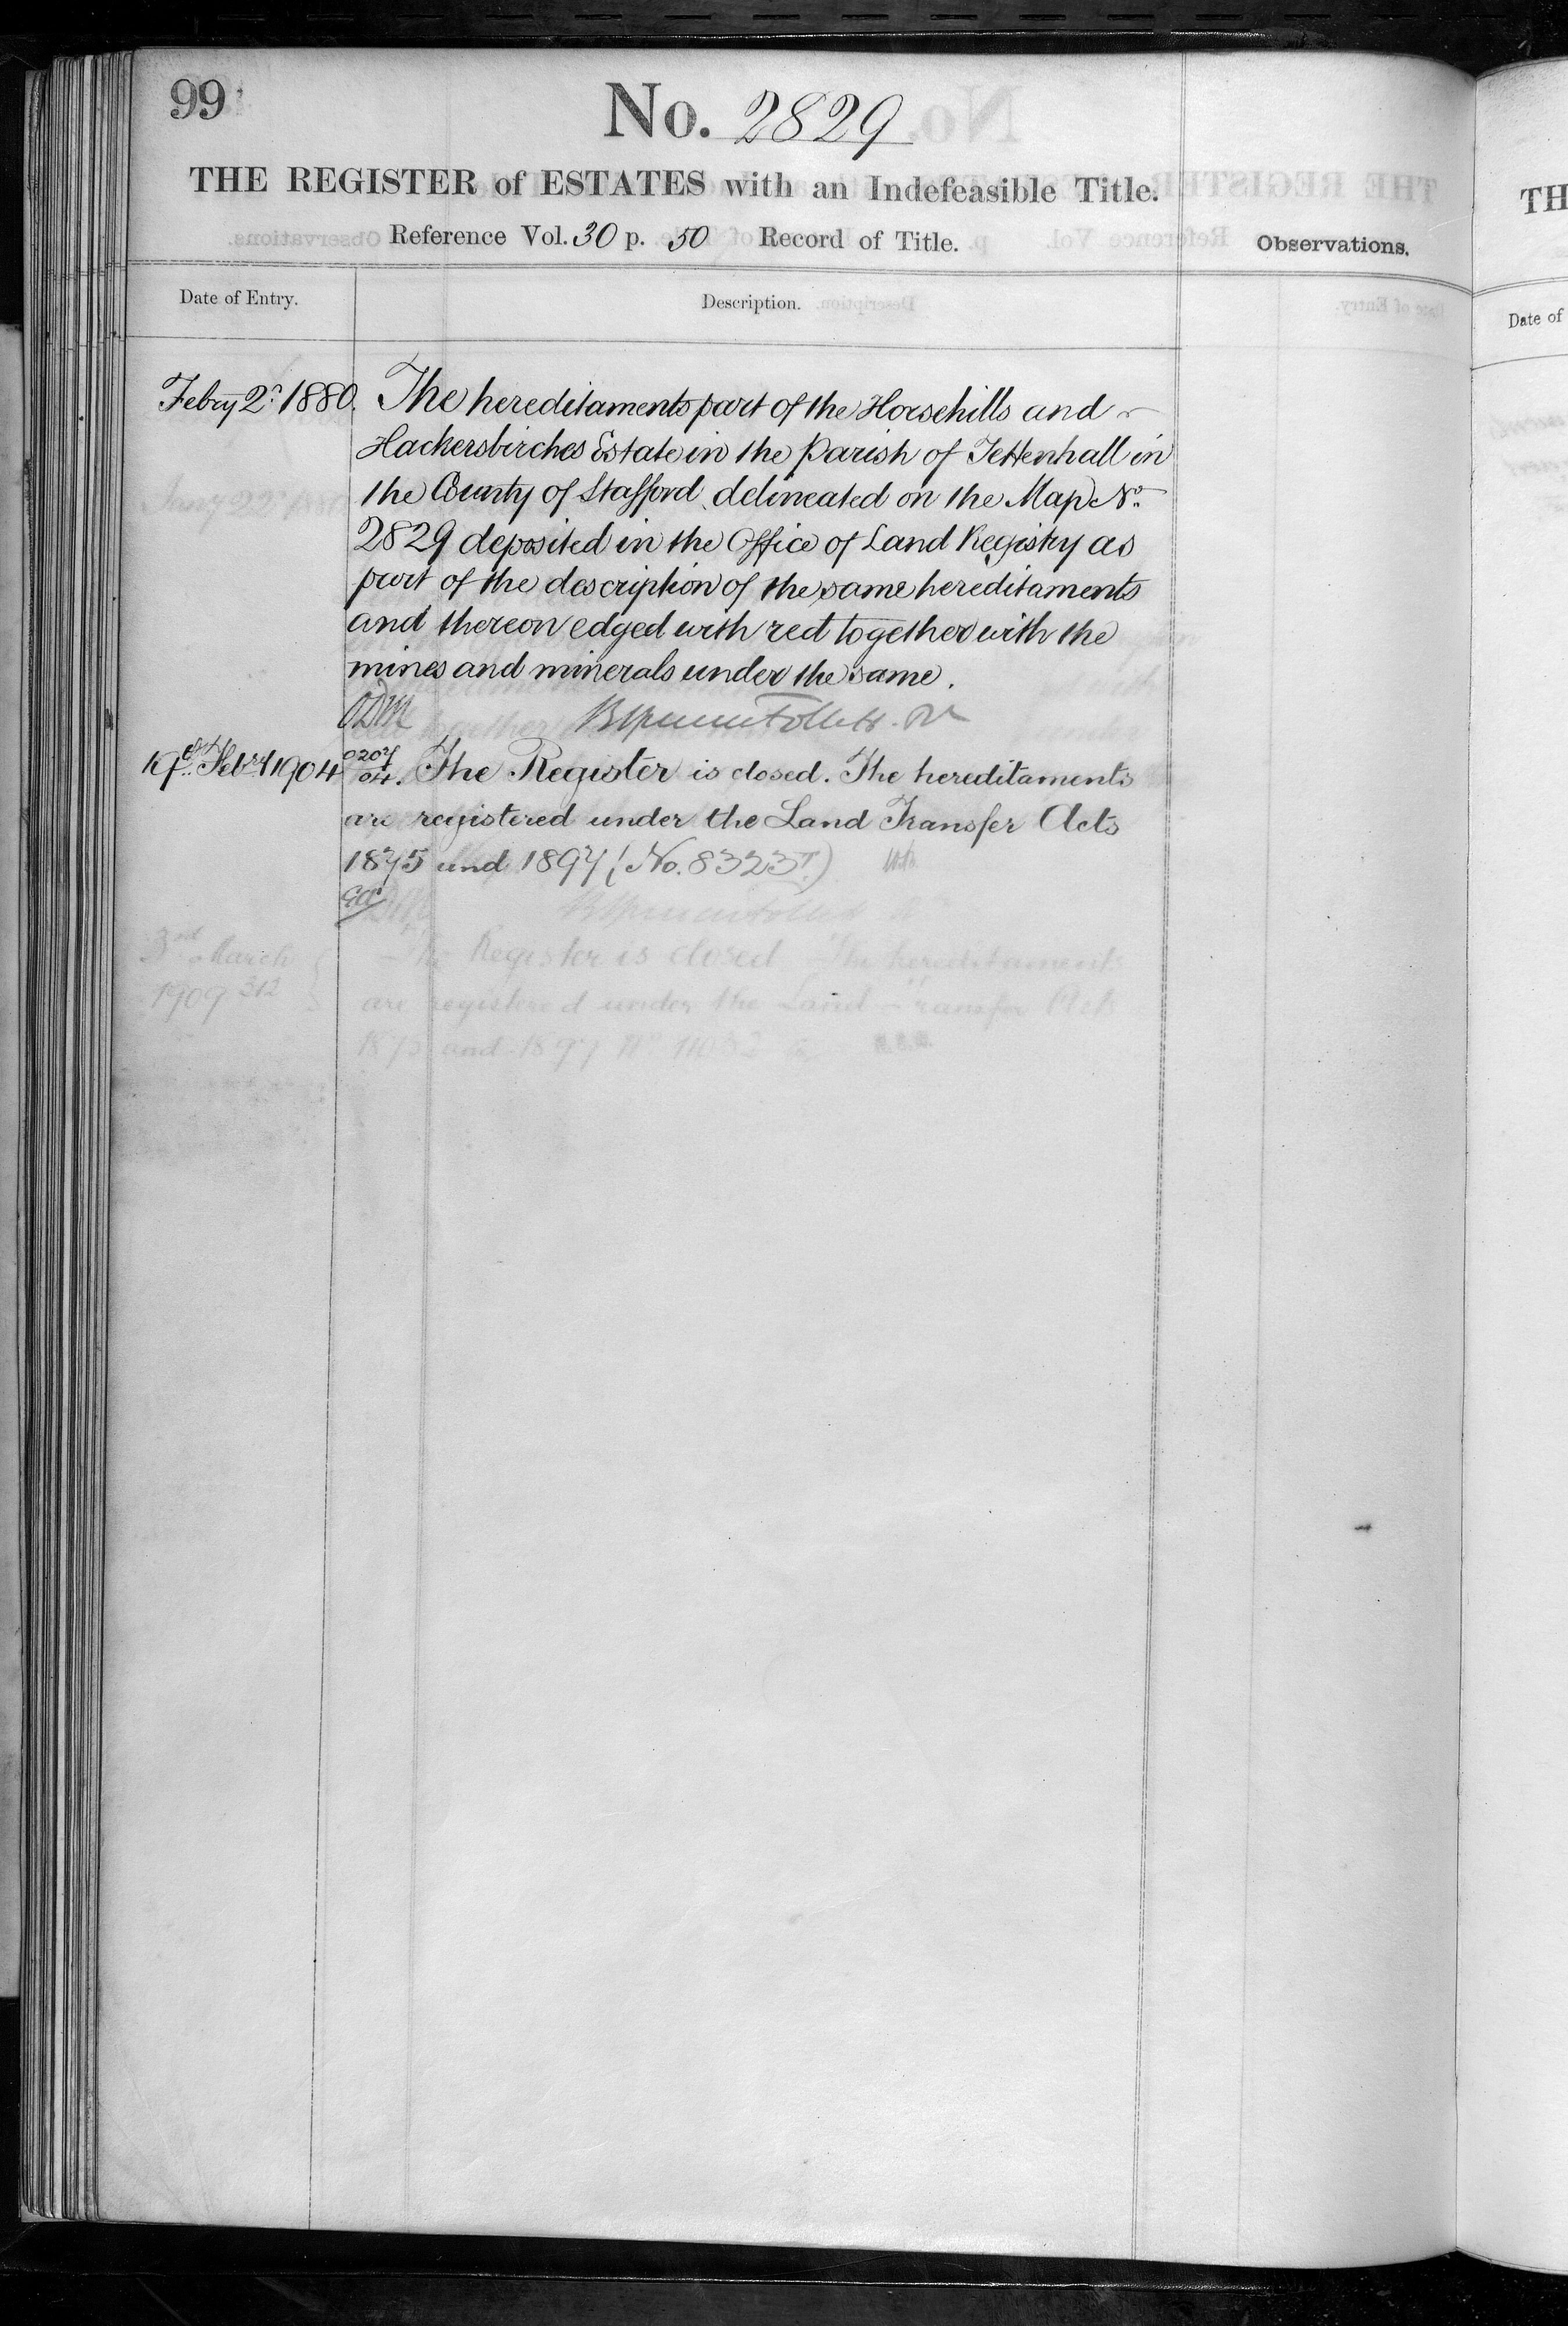 99
No. 2829
THE REGISTER of ESTATES with an Indefeasible Title.
Reference Vol. 30 p. 50 Record of Title.
Observations.
Date of Entry.
Description.
Febry 2d 1880. The hereditaments part of the Horsehills and
Hackersbirches Estate in the Parish of Tettenhall in
the County of Stafford delineated on the Map No.
2829 deposited in the Office of Land Registry as
part of the description of the same hereditaments
and thereon edged with red together with the
mines and minerals under the same.
19th Febry 1904 0207/04. The Register is closed. The hereditaments
are registered under the Land Transfer Acts
1875 and 1897 (No. 8323T.)
3rd March The Register is closed The hereditaments
1909 312 are registered under the Land Transfer Acts
1875 and 1897 No
TH
Date of